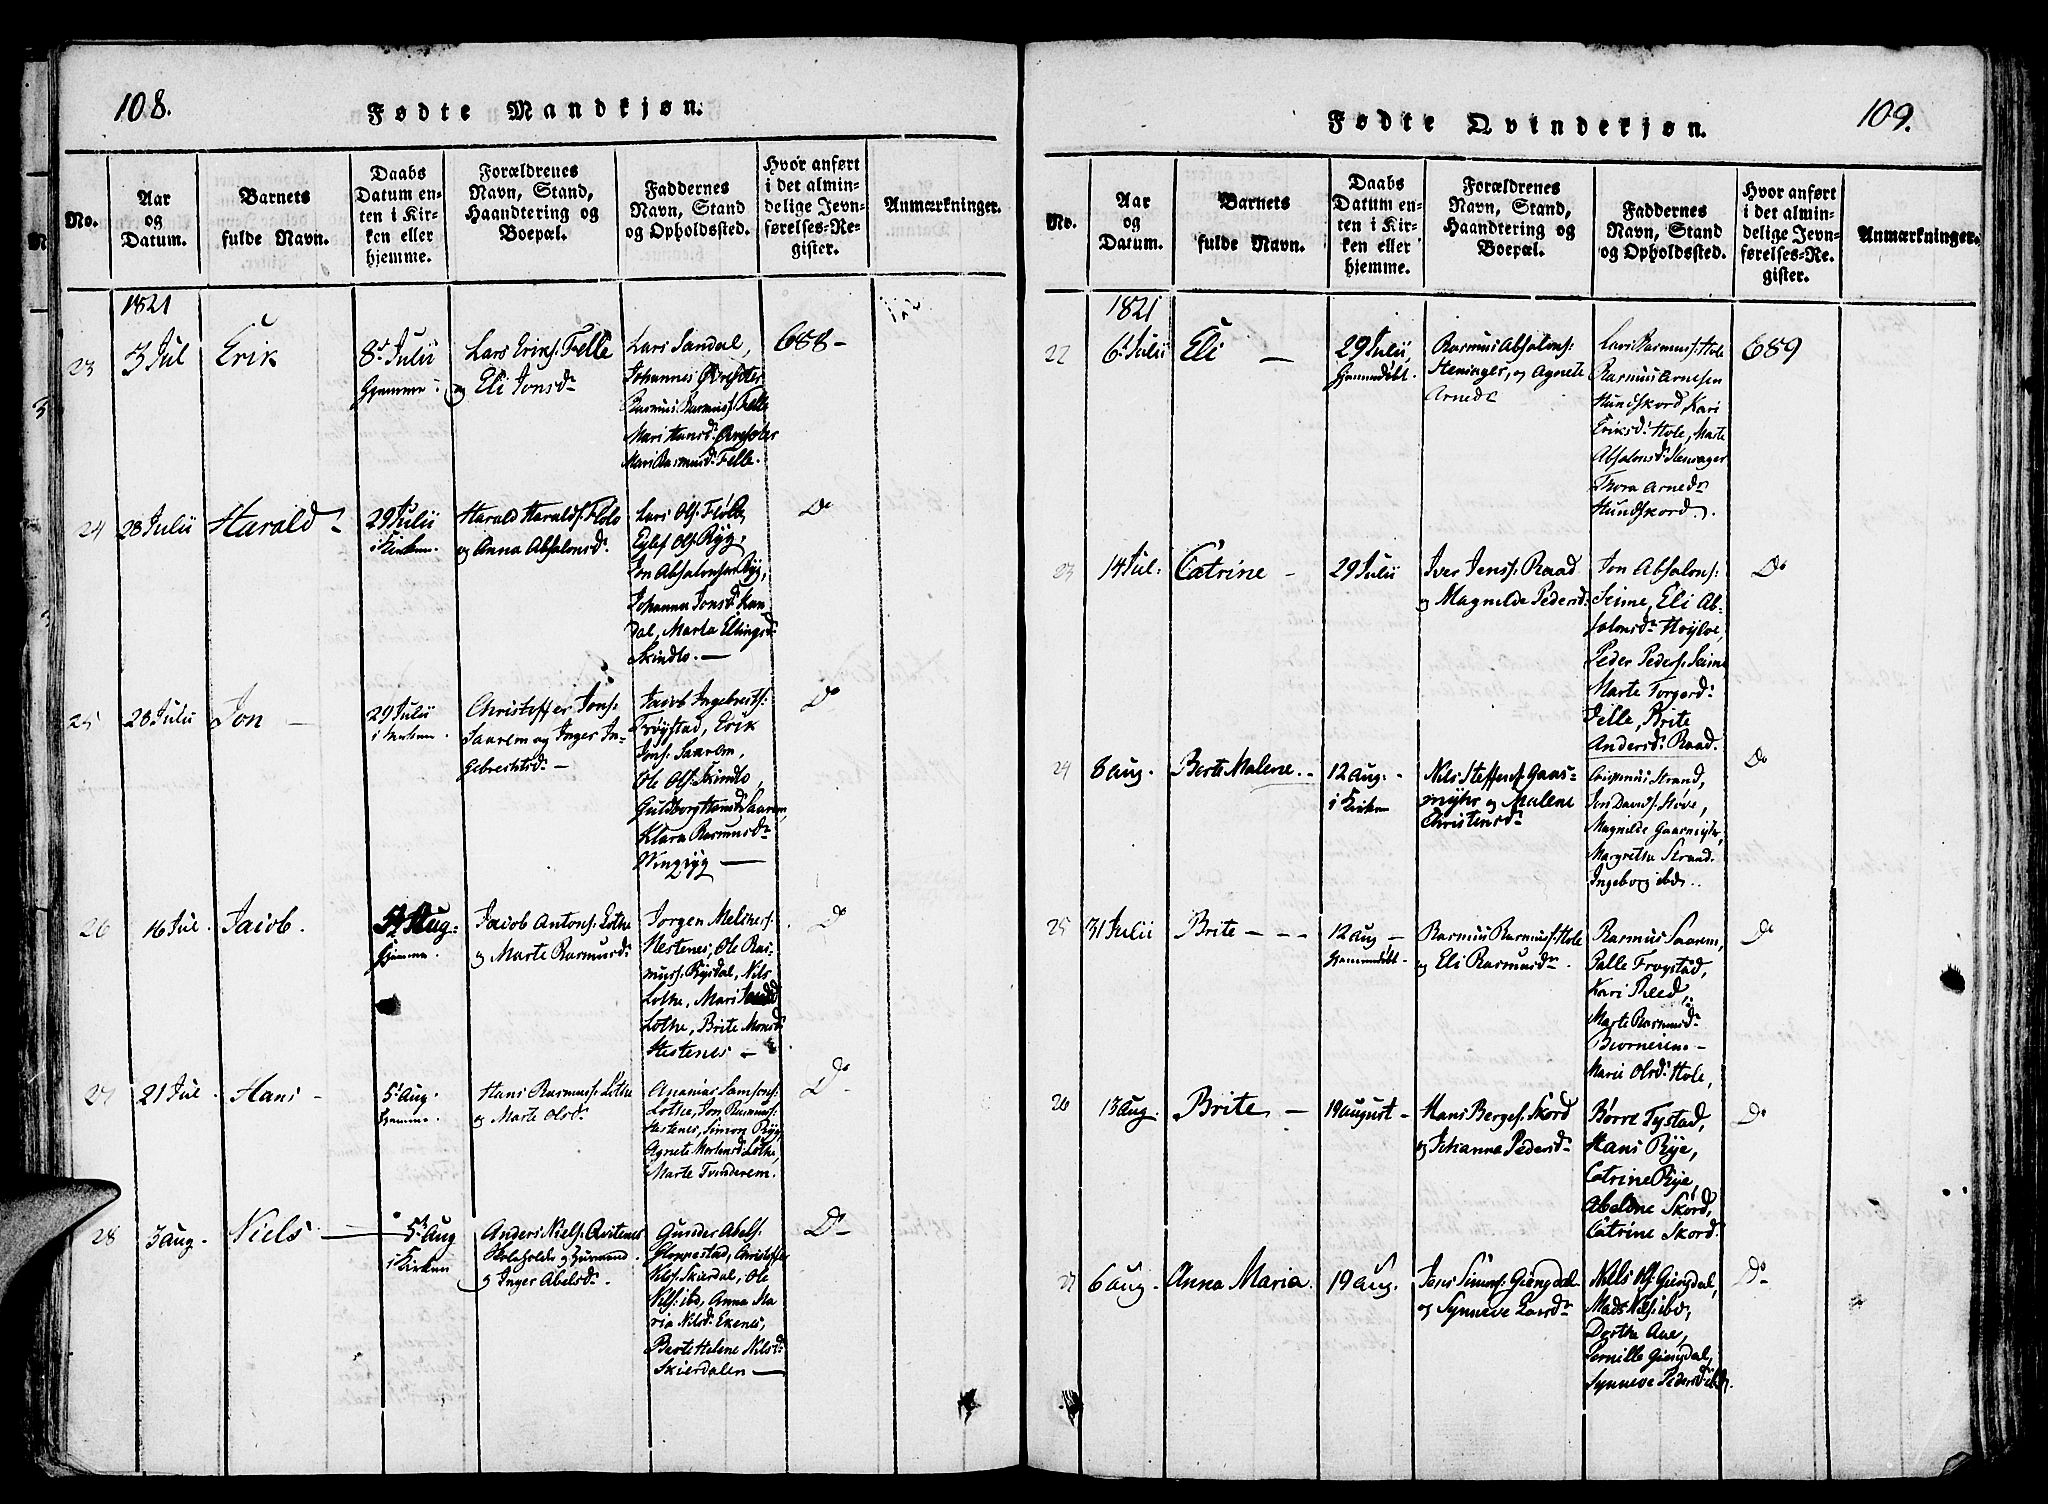 108.
Fødte Mandkjøn.
No.
Aar
og
Datum.
Barnets
fulde Navn.
Daabs
Datum en-
ten i Kir-
ken eller
hjemme.
Forældrenes
Navn, Stand,
Haandtering og
Boepæl.
Faddernes
Navn, Stand
og Opholdssted.
Hvor anført
i det almin-
delige Jevn-
førelses-Re-
gister.
Anmærkninger.
1821
23
3 Jul
Erik
8d Julii
Hjemme
Lars Eriks. Felle
og Eli Jonsdr
Lars Sandal,
Johannes Øvresæter
Rasmus Rasmuss. Felle
Mari Hansdr
Mari Rasmusdr Felle.
688 –
24
28 Julii
Harald
29 Julii
i Kirken
Harald Haralds. Flølo
og Anna Absalonsdr
Lars Ols. Fløll
Eylef Ols. Ryg,
Jon Absalonsen Ryg,
Johanna Jonsdr Kan
dal, Marta Ellingsd
Skindlo. —
Do
25
28 Julii
Jon —
29 Julii
i Kirken
Christoffer Jons.
Saarem og Inger In-
gebrechtsdr —
Jacob Ingebrects.
Frøystad, Erik
Jons. Saarem,
Ole Ols. Skindlo,
Guldborg Hansd. Saarem,
Klara Rasmusdr
Wingryg —
Do
26
16 Jul.
Jacob.
5t Aug:
Hjemme
Jacob Antons. Lothe
og Marte Rasmusdr
Jorgen Melchers.
Hestenes, Ole Ras-
muss. Rysdal, Nils
Lothe, Mari
Lothe, Brite Monsd
Hestenes —
Do
27
21 Jul.
Hans –
5t Aug.
Hjemme
Hans Rasmuss. Lothe
og Marte Olsdr
Ananias Samsons.
Lothe, Jon Rasmuss.
Hestenes, Simon Ryg,
Agnete Mortensd Lothe,
Marte Tvinderem.
Do
28
3 Aug.
Niels —
5t Aug
i Kirken
Anders Niels. Qvitenes
og Inger Abelsdr.
Gunder Abels.
Gloppestad, Christoffer
Nils. Skierdal, Ole
Nils. ibd, Anna Ma
ria Nilsdr Ekenes,
Berte Helene Nilsdr
Skierdalen —
Do
109.
Fødte Qvindekjøn.
No.
Aar
og
Datum.
Barnets
fulde Navn.
Daabs
Datum en-
ten i Kir-
ken eller
hjemme.
Forældrenes
Navn, Stand,
Haandtering og
Boepæl.
Faddernes
Navn, Stand
og Opholdssted.
Hvor anført
i det almin-
delige Jevn-
førelses-Re-
gister.
Anmærkninger.
1821
22
6t Julii
Eli —
29 Julii,
Hjemmedøbt.
Rasmus Absalons.
Heninger, og Agnete
Arnedr
Lars Rasmuss. Hole
Rasmus Arnesen
Hundskord, Kari
Eriksdr Hole, Marte
Absalonsdr
Thora Arnedr
Hundskord.
689
23
14 Jul:
Catrine –
29 Julii
Iver Jenss. Raad
og Magnilde Pedersd.
Jon Absalons.
Seime, Eli Ab-
salonsdr Høylve,
Peder Peders. Seime
Marte Torgerdr
Felle, Brite
Andersdr Raad.
Do
24
8 Aug.
Berte Malene. –
12 Aug. –
i Kirken
Nils Steffens. Gaas-
myhr og Malene
Christensdr
Erasmus Strand,
Jens Davids. Høve,
Magnilde Gaasmyhr,
Margretha Strand.
Ingeborg ibd..
Do
25
31 Julii
Brite – – –
12 Aug –
Hjemmedøbt.
Rasmus Rasmuss. Hole
og Eli Rasmusdr.
Rasmus Saarem,
Palle Frøystad,
Kari Reed,
Marte Rasmusdr
Biorneiem –
Marie Olsdr Hole,
Do
26
13 Aug.
Brite —
19 August –
Hans Berges. Skord
og Johanna Pedersdr
Børre Tystad,
Hans Rye,
Catrine Rye,
Abelone Skord,
Catrine Skord.
Do
27
6 Aug.
Anna Maria.
19 Aug.
Jens Simons. Giengdal
og Synneve Larsdr
Niels Ols. Giengdal,
Mads Niels. ibd,
Dorthe Aae,
Pernille Giengdal,
Synneve Pedersd ibd.
Do